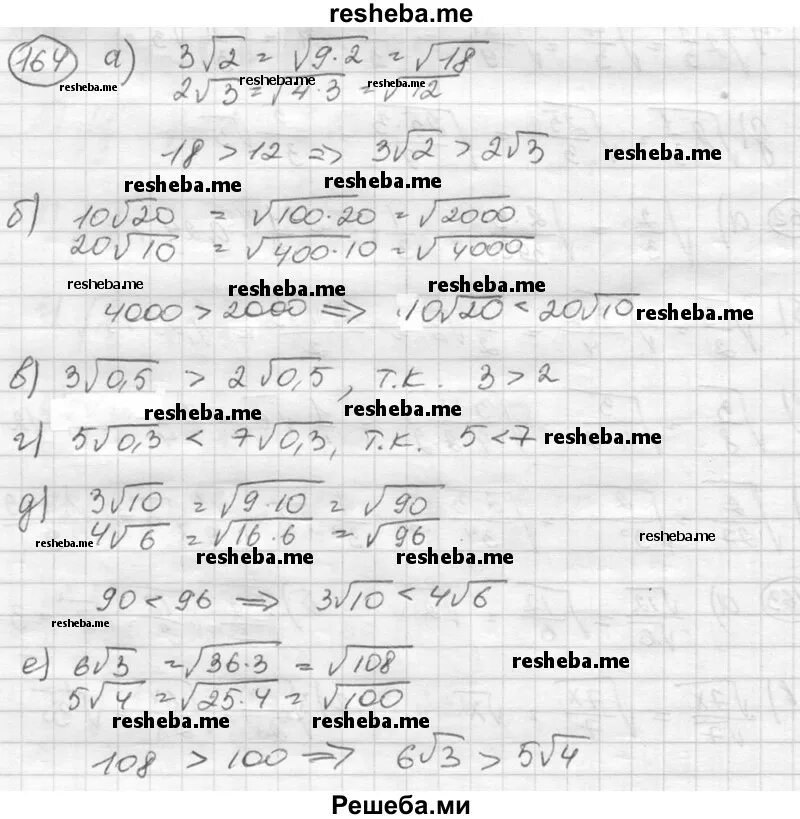 resheba.me
164 а) 3√2 = √9·2 = √18
resheba.me resheba.me resheba.me
2√3 = √4·3 = √12
18 > 12 ⇒ 3√2 > 2√3 resheba.me
resheba.me resheba.me
б) 10√20 = √100·20 = √2000
20√10 = √400·10 = √4000
resheba.me resheba.me resheba.me
4000 > 2000 ⇒ 10√20 < 20√10 resheba.me
в) 3√0,5 > 2√0,5, т.к. 3 > 2
resheba.me resheba.me
г) 5√0,3 < 7√0,3, т.к. 5 < 7 resheba.me
д) 3√10 = √9·10 = √90
4√6 = √16·6 = √96
resheba.me resheba.me resheba.me resheba.me
90 < 96 ⇒ 3√10 < 4√6
resheba.me
е) 6√3 = √36·3 = √108 resheba.me
5√4 = √25·4 = √100
resheba.me resheba.me
108 > 100 ⇒ 6√3 > 5√4
Решеба.ми